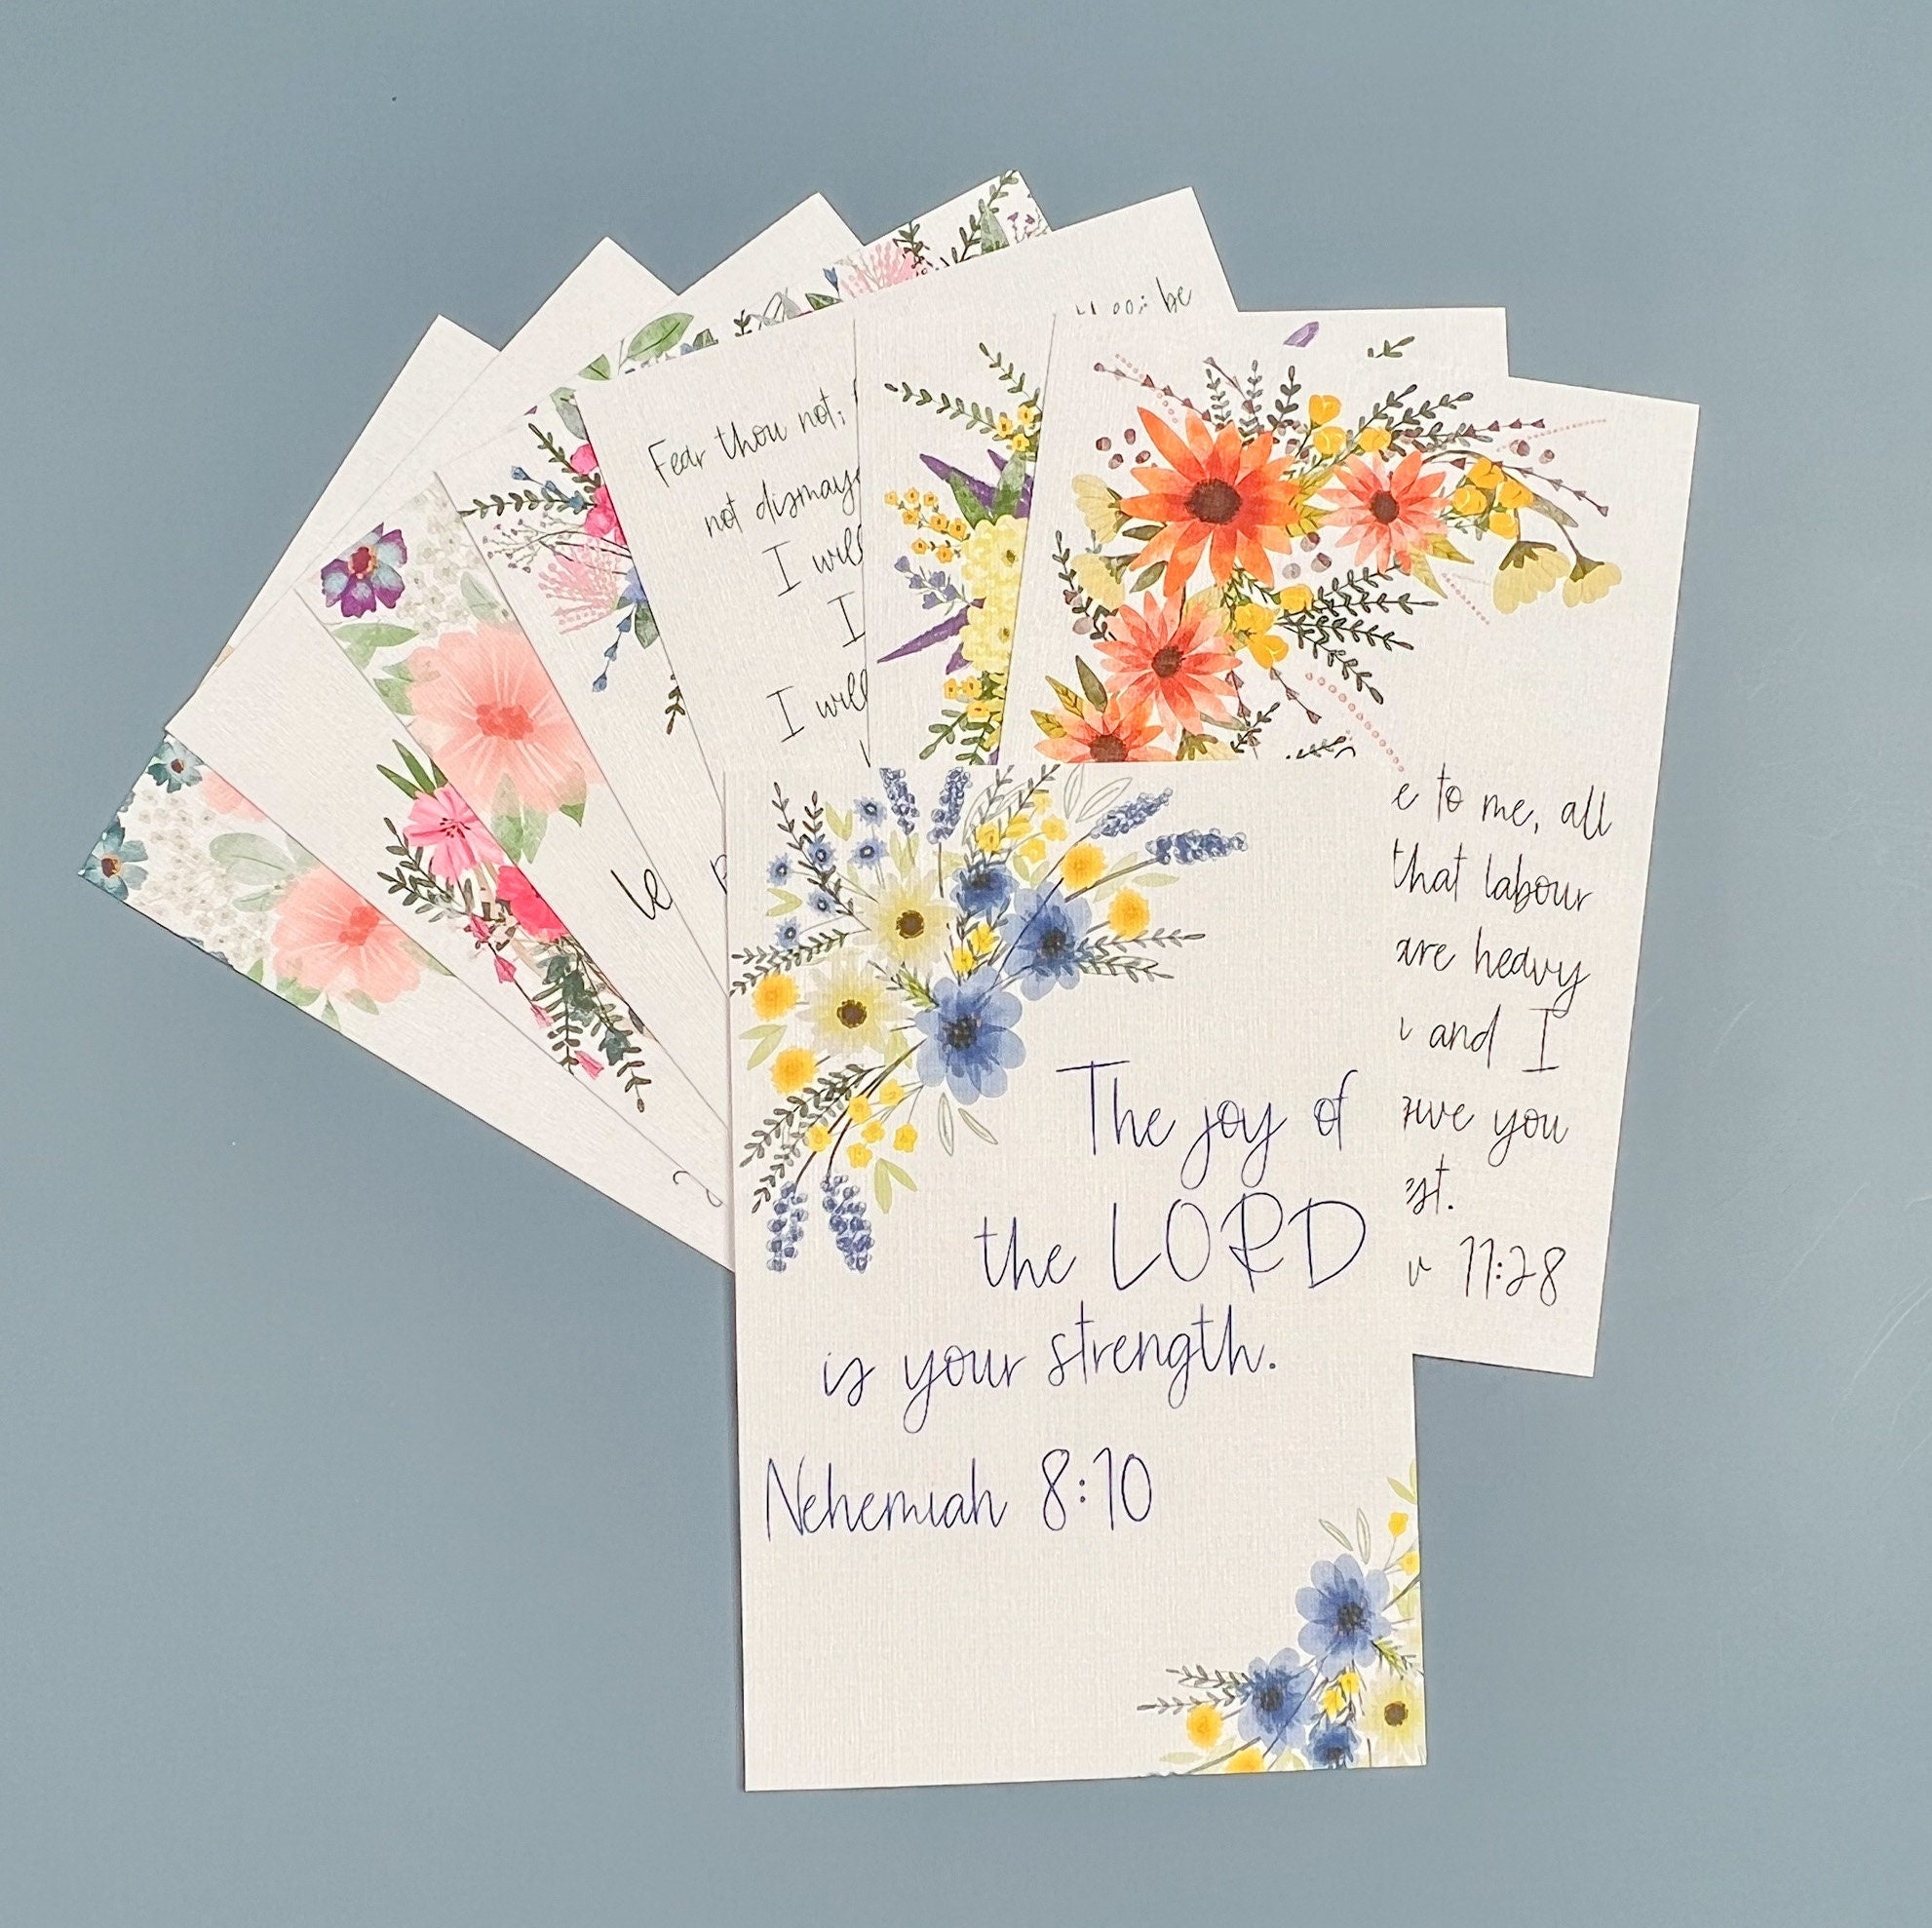 be
Fear thou not;
not dismaye
I will
I
I will
le
e to me, all
that labour
are heavy
and I
give you
st.
11:28
The joy of
the LORD
is your strength.
Nehemiah 8:10